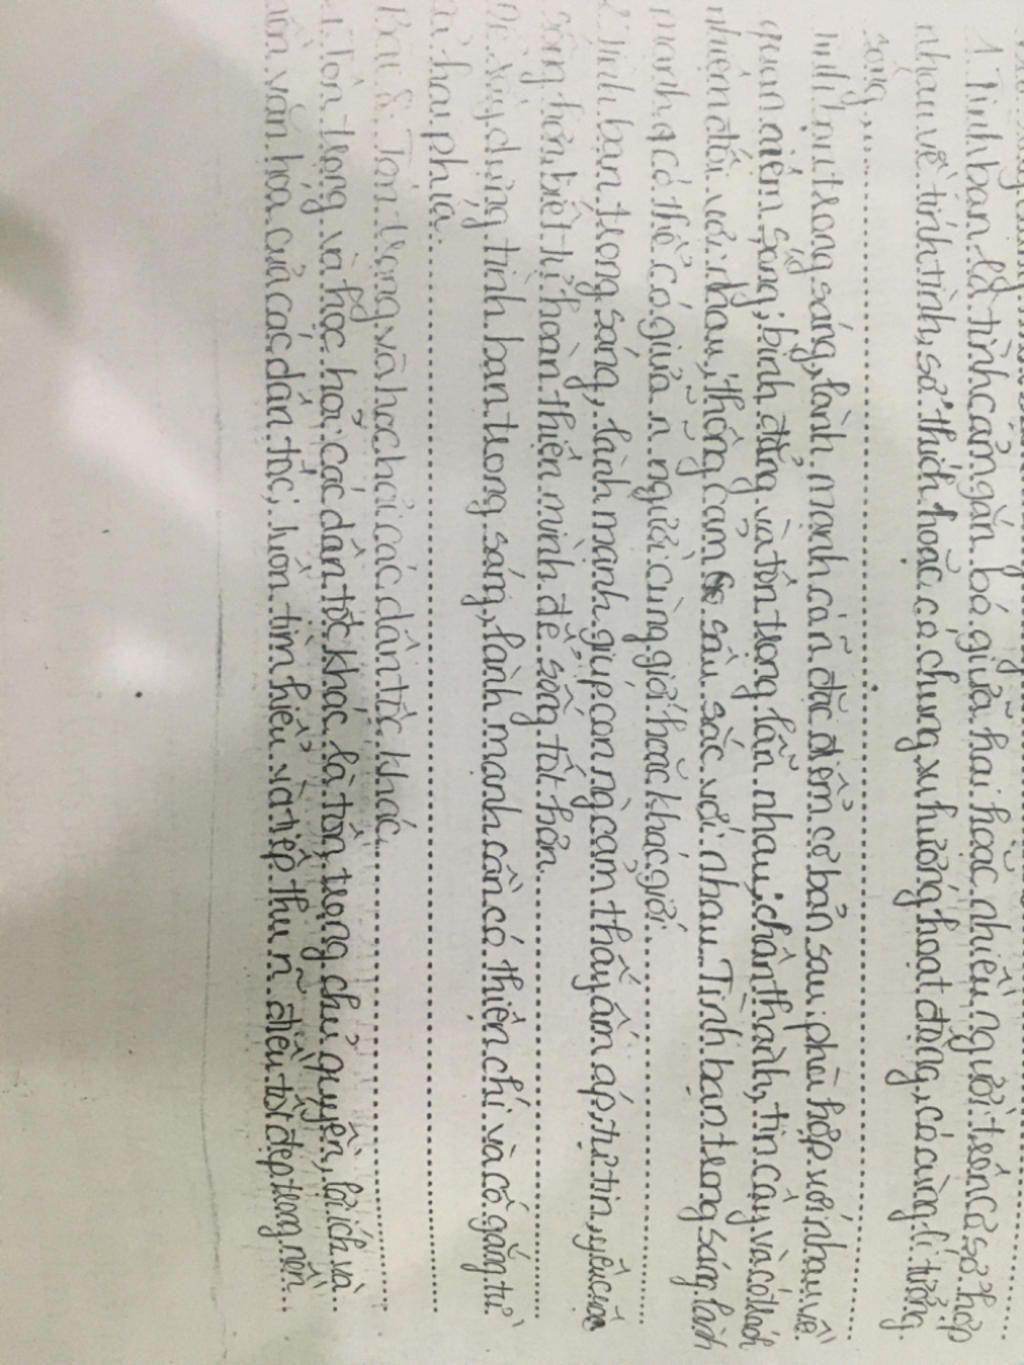 1. Tình bạn là tình cảm gắn bó giữa hai hoặc nhiều người trên cơ sở hợp
nhau về tính tình, sở thích hoặc có chung xu hướng hoạt động, có cùng lí tưởng
sống,...
Tình bạn trong sáng, lành mạnh có ñ đặc điểm cơ bản sau: phù hợp với nhau về
quan niệm sống; bình đẳng và tôn trọng lẫn nhau; chân thành, tin cậy và có trách
nhiệm đối với nhau; thông cảm sâu sắc với nhau. Tình bạn trong sáng lành
mạnh có thể có giữa ñ người cùng giới hoặc khác giới.
2. Tình bạn trong sáng, lành mạnh giúp con ng cảm thấy ấm áp, tự tin, yêu cuộc
sống hơn, biết tự hoàn thiện mình để sống tốt hơn.
Để xây dựng tình bạn trong sáng, lành mạnh cần có thiện chí và cố gắng từ
cả hai phía.
Bài 8: Tôn trọng và học hỏi các dân tộc khác
1. Tôn trọng và học hỏi các dân tộc khác là tôn trọng chủ quyền, lợi ích và
nền văn hóa của các dân tộc; luôn tìm hiểu và tiếp thu ñ điều tốt đẹp trong nền